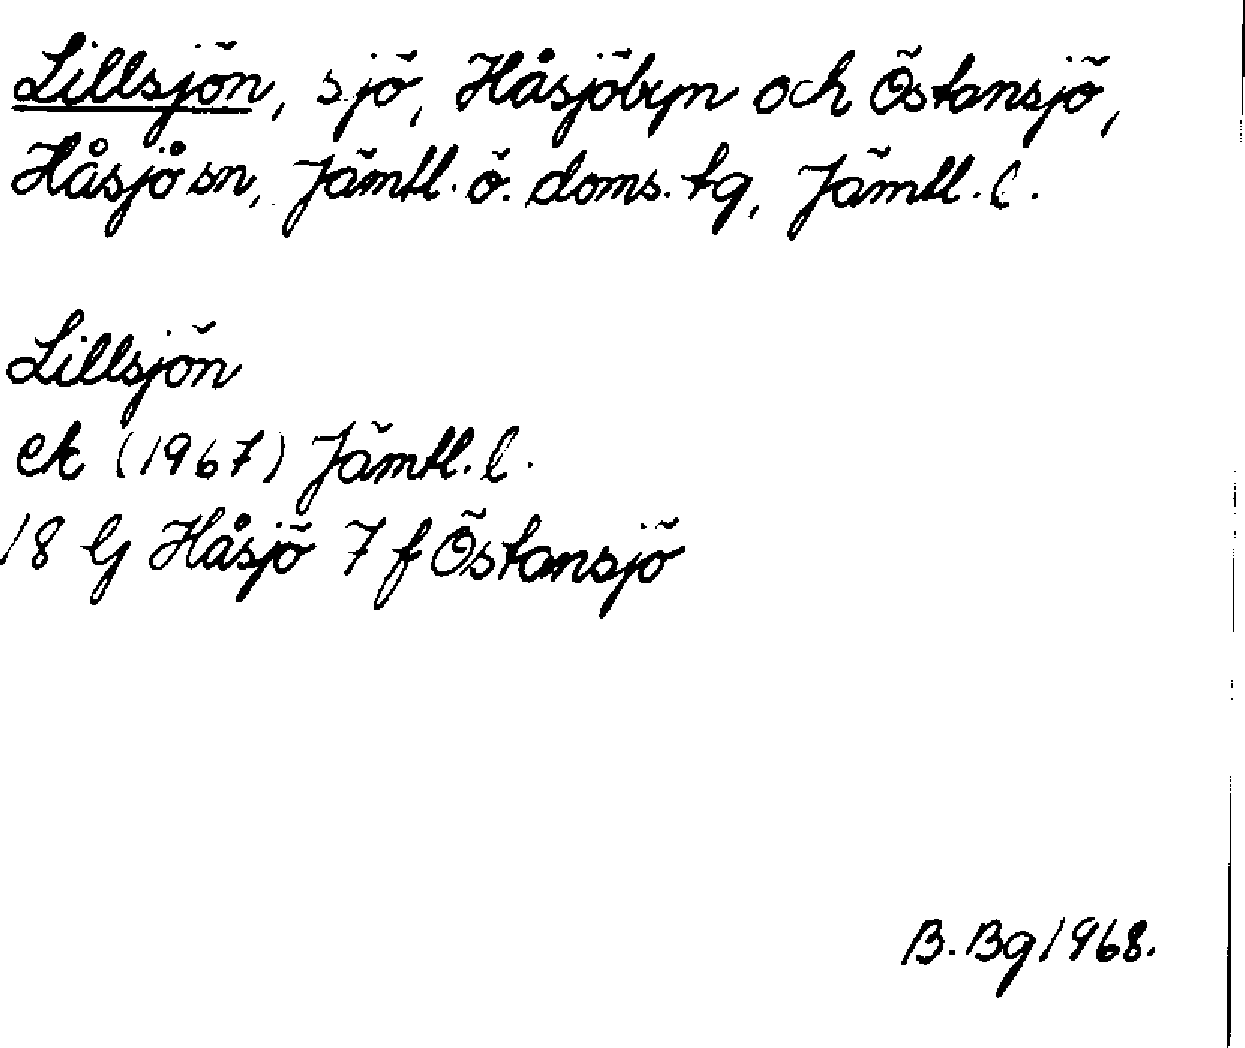 Lillsjön, sjö, Håsjöbyn och Östansjö,
Håsjö sn, Jämtl. ö. doms. tg, Jämtl. l.
Lillsjön
ek (1967) Jämtl. l.
18 G Håsjö 7 f Östansjö
B. Bg 1968.